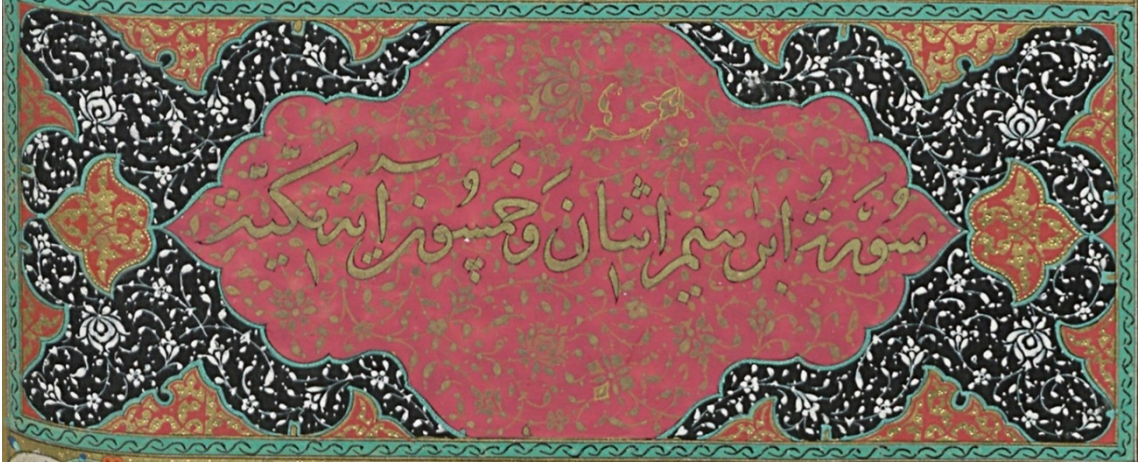 سُورَةُ ابرٰهيمُ اثنَان وَخمَسُونَ آيَة مَكّيَّة